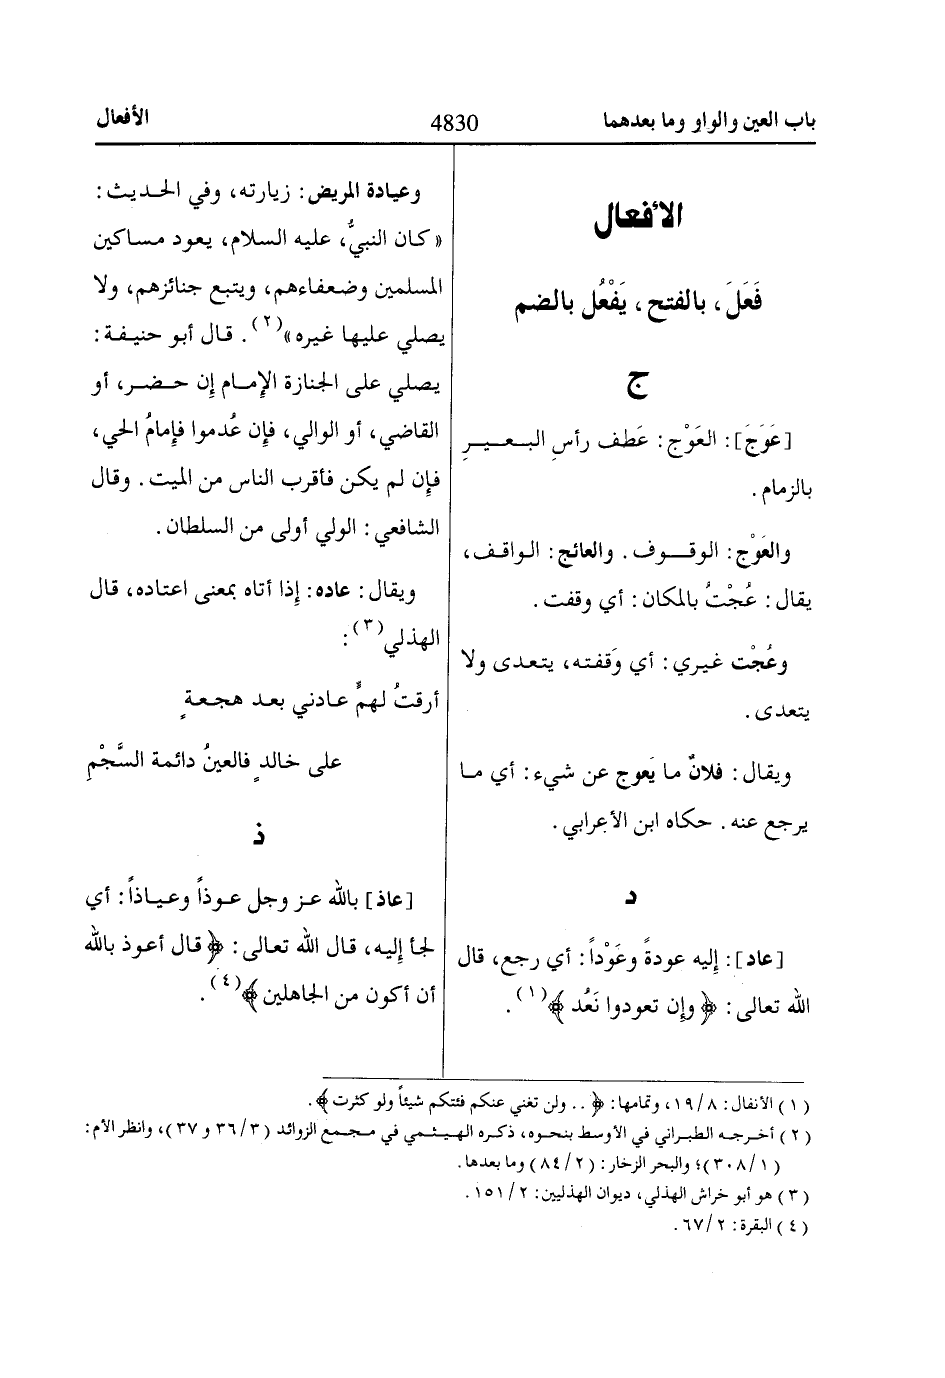 باب العين والواو وما بعدهما
4830
الأفعال
الأفعال
فَعَلَ، بالفتح، يَفْعُل بالضم
ج
[عَوَجَ]: العَوْج: عَطف رأسِ البعيرِ
بالزمام.
والعَوْج: الوقوف. والعائج: الواقف،
يقال: عُجْتُ بالمكان: أي وقفت.
وعُجْت غيري: أي وَقفته، يتعدى ولا
يتعدى.
ويقال: فلانٌ ما يَعوج عن شيء: أي ما
يرجع عنه. حكاه ابن الأعرابي.
د
[عاد]: إليه عودةً وعَوْداً: أي رجع، قال
الله تعالى: ﴿وإن تعودوا نَعُد﴾(١).
وعيادة المريض: زيارته، وفي الحديث:
«كان النبيُّ، عليه السلام، يعود مساكين
المسلمين وضعفاءهم، ويتبع جنائزهم، ولا
يصلي عليها غيره»(٢). قال أبو حنيفة:
يصلي على الجنازة الإمام إن حضر، أو
القاضي، أو الوالي، فإن عُدموا فإمامُ الحي،
فإن لم يكن فأقرب الناس من الميت. وقال
الشافعي: الولي أولى من السلطان.
ويقال: عاده: إذا أتاه بمعنى اعتاده، قال
الهذلي(٣):
أرقتُ لهمٍّ عادني بعد هجعةٍ
على خالدٍ فالعينُ دائمة السَّجْمِ
ذ
[عاذ] بالله عز وجل عوذاً وعياذاً: أي
لجأ إليه، قال الله تعالى: ﴿قال أعوذ بالله
أن أكون من الجاهلين﴾(٤).
(١) الأنفال: ١٩/٨، وتمامها: ﴿.. ولن تغني عنكم فئتكم شيئاً ولو كثرت﴾.
(٢) أخرجه الطبراني في الأوسط بنحوه، ذكره الهيثمي في مجمع الزوائد (٣٦/٣ و ٣٧)، وانظر الأم:
(٣٠٨/١)؛ والبحر الزخار: (٨٤/٢) وما بعدها.
(٣) هو أبو خراش الهذلي، ديوان الهذليين: ١٥١/٢.
(٤) البقرة: ٦٧/٢.